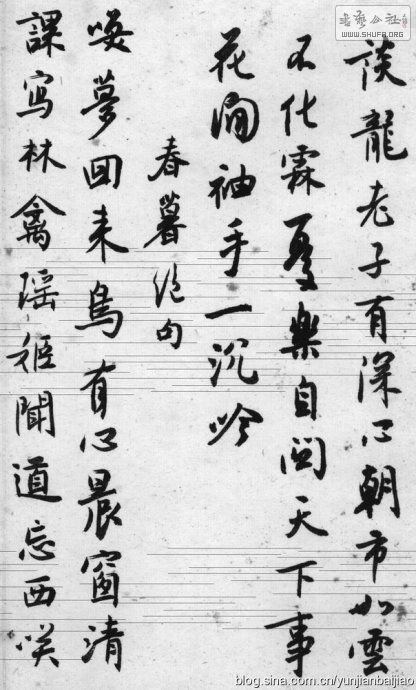 談龍老子有深心朝市如雲
不作霖憂樂自關天下事
花間袖手一沉吟
春暮絕句
喚夢回來鳥有心晨窗清
課寫林禽瑤姬聞道忘西笑
書藝公社
WWW.SHUFA.ORG
blog.sina.com.cn/yunjianbaijiao